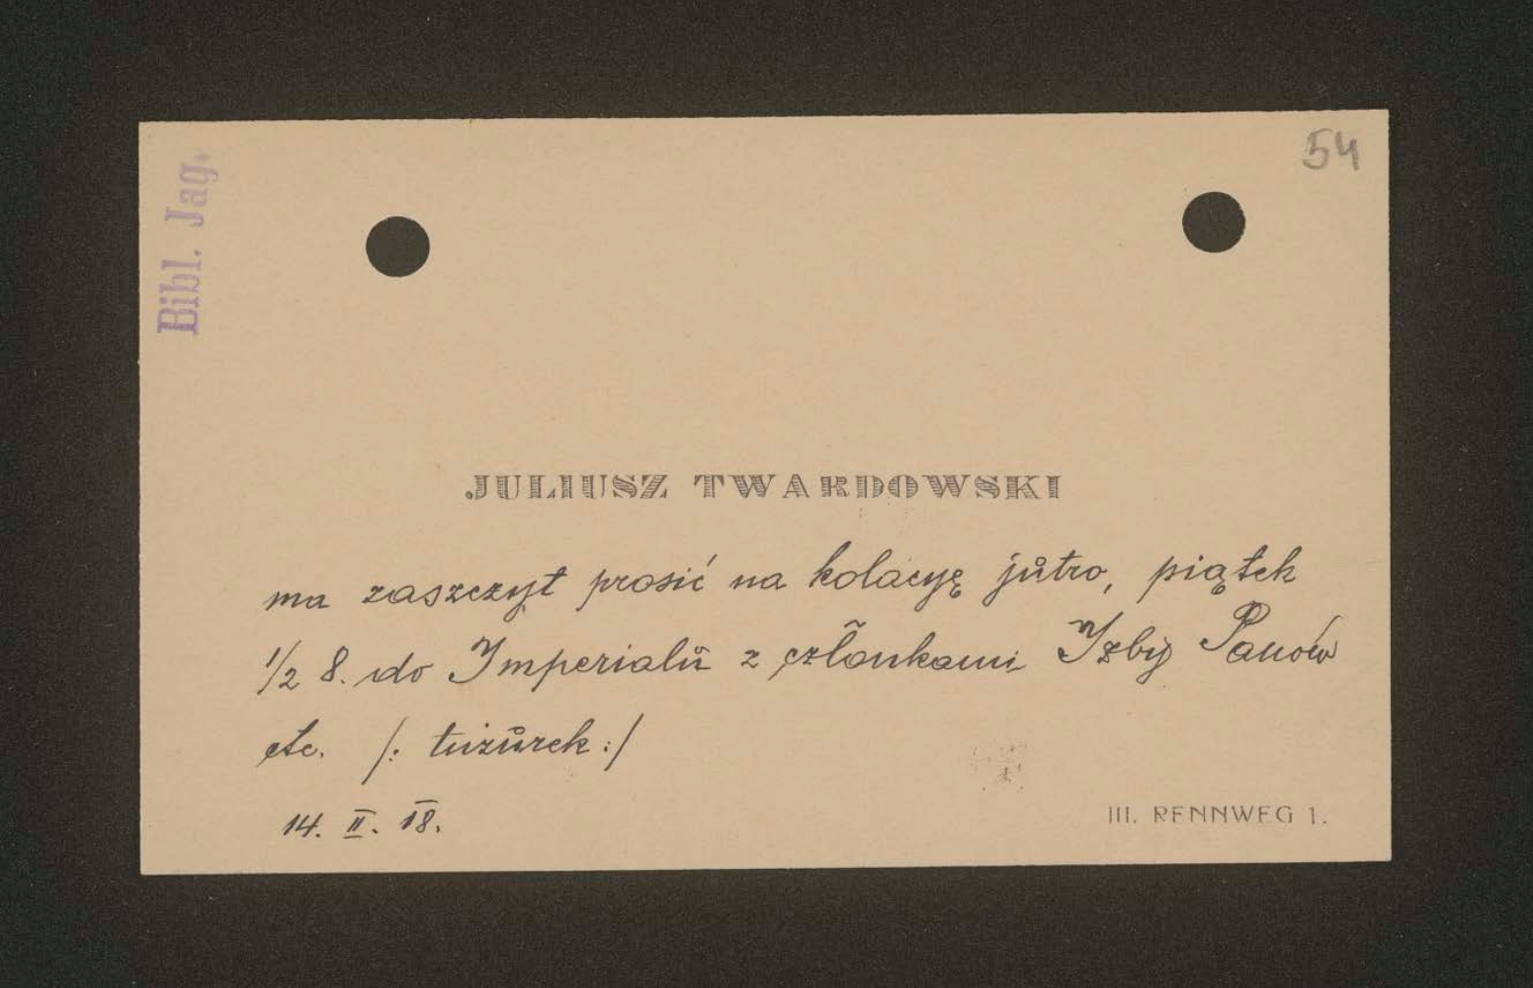 54
Bibl. Jag.
JULIUSZ TWARDOWSKI
ma zaszczyt prosić na kolacyę jutro, piątek
1/2 8. do Imperialu z członkami Izby Panów
etc. /: tużurek :/
14. II. 18.
III. RENNWEG 1.